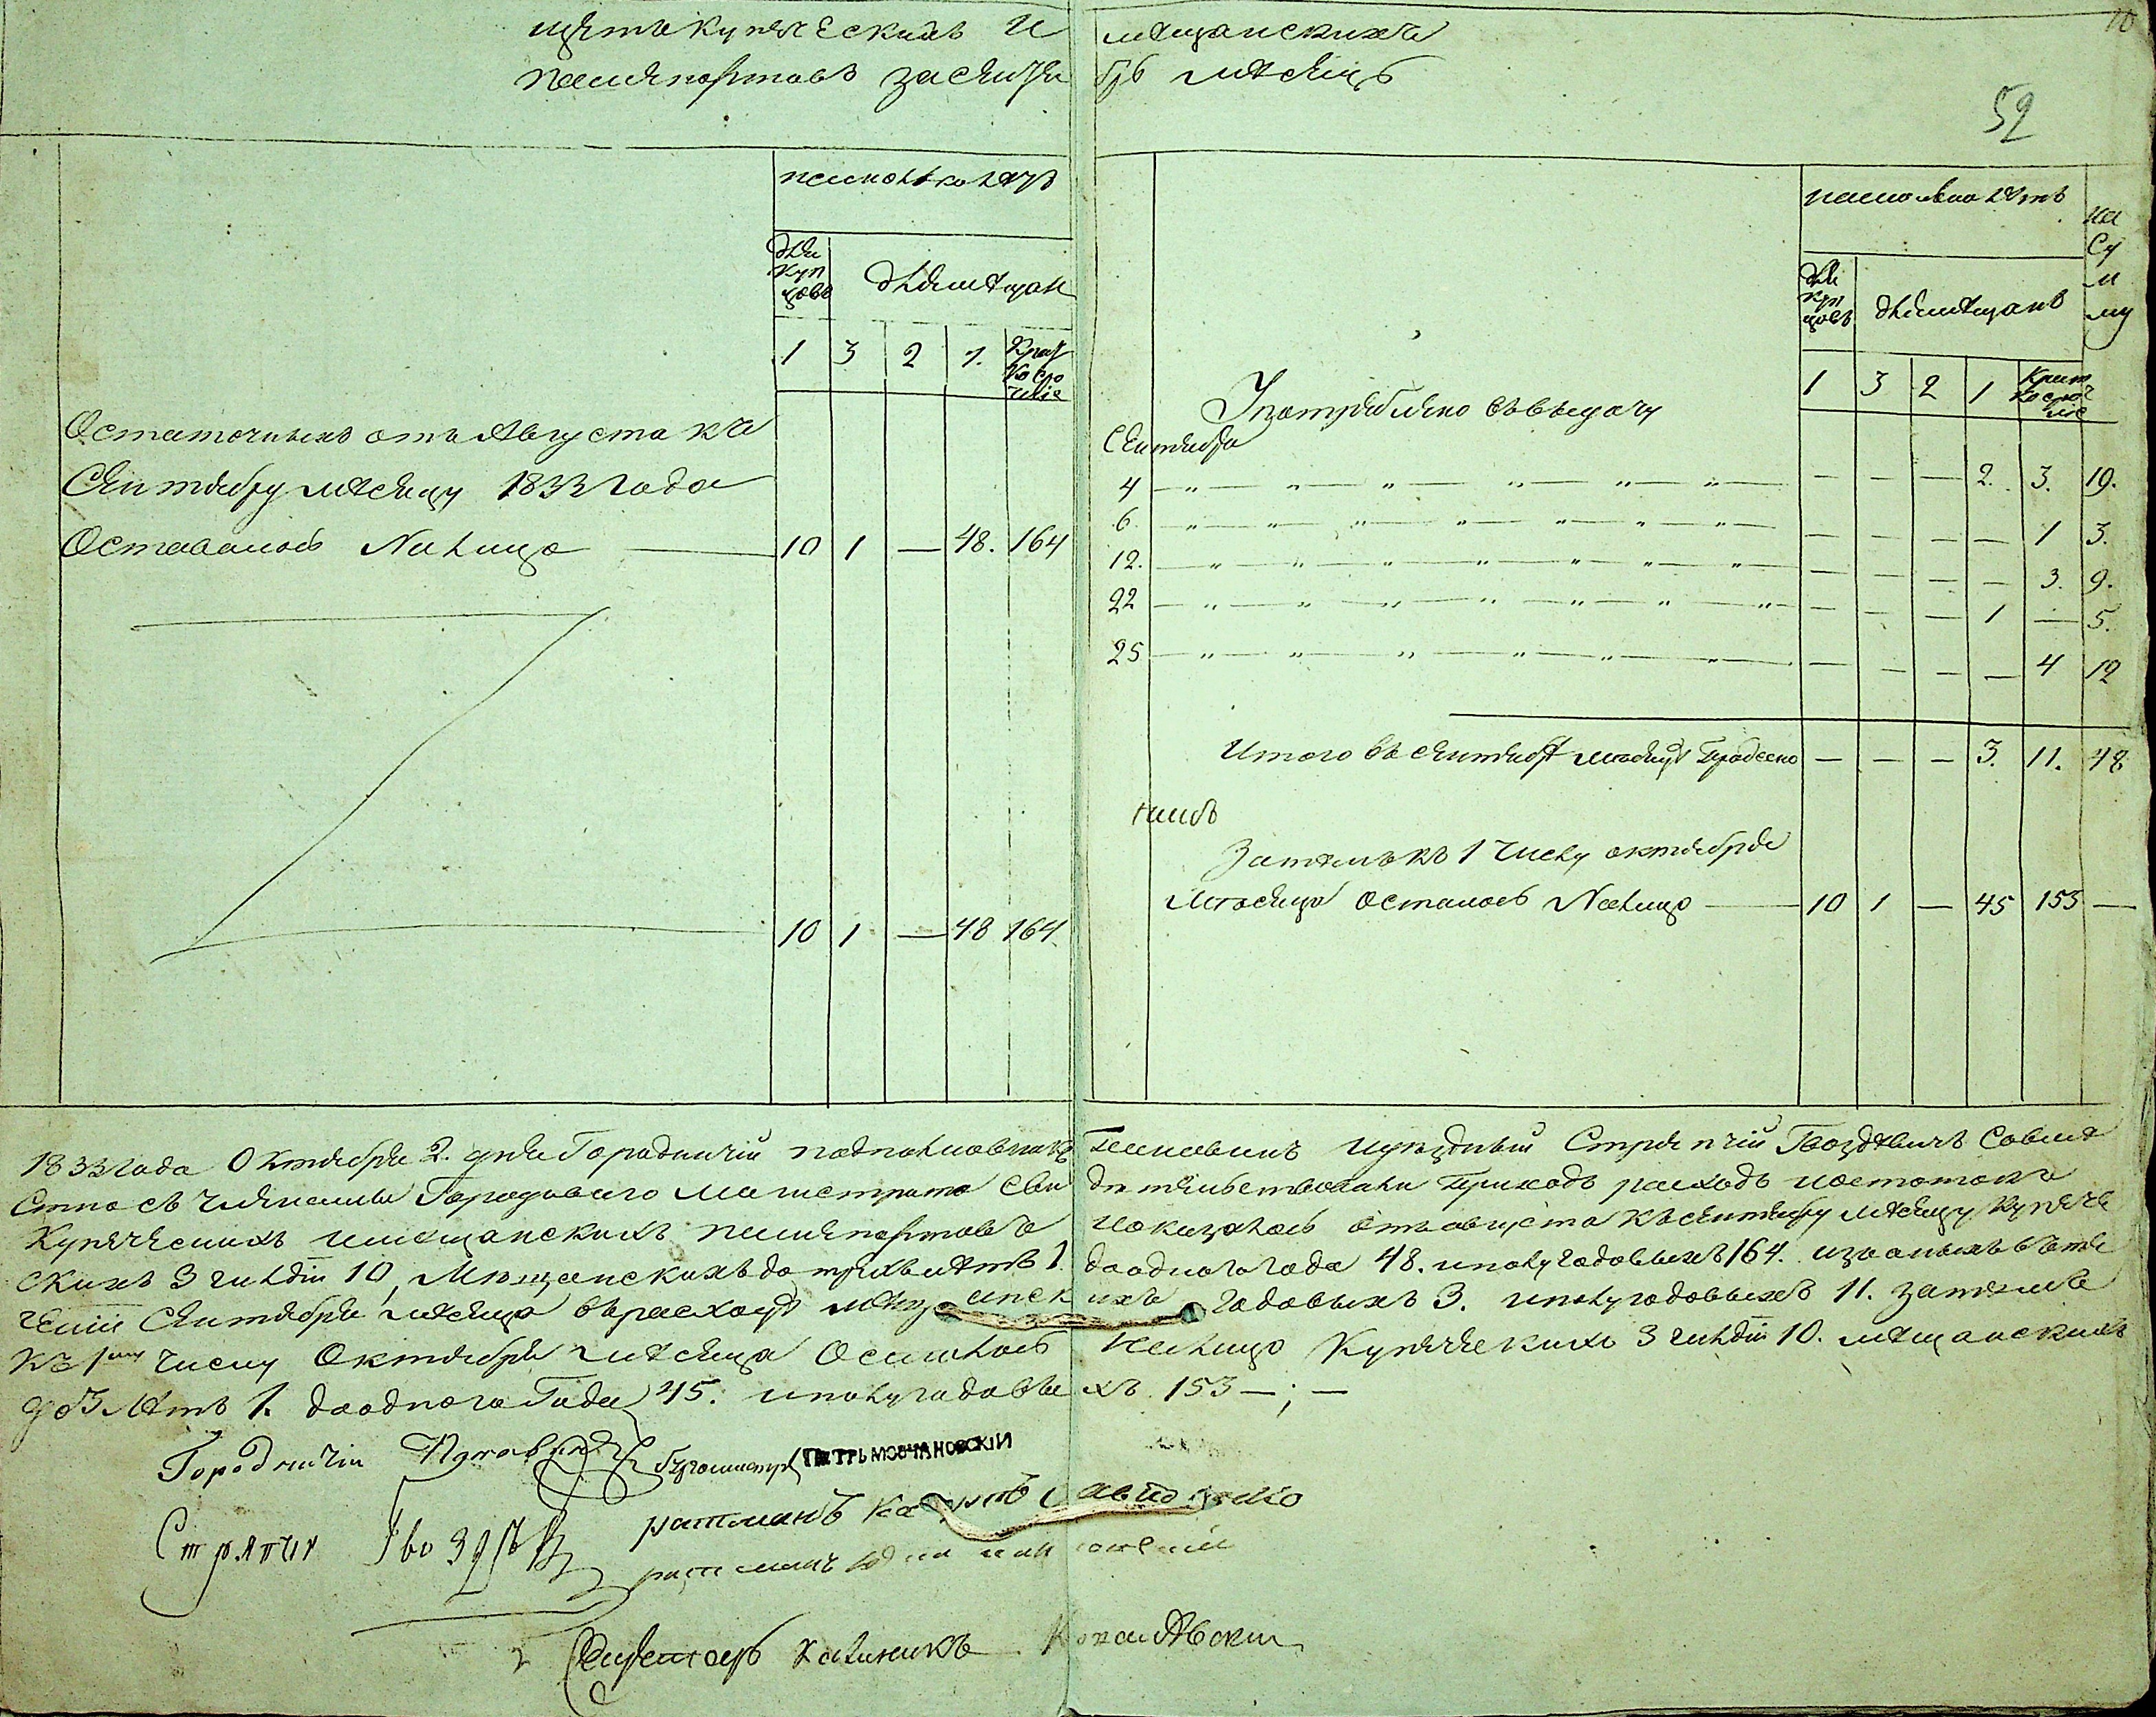 щетъ купеческихъ и мещанскихъ
пашепортовъ засентя брь месяцъ
10
52
насколько летъ
для куп цовъ
длямещан
1 3 2 1. Крат ко сро чные
Остаточныхъ отъ Августа къ
Сентябру месяцу 1833 года
Осталось Налицо — 10 1 — 48. 164
10 1 — 48 164
насколко летъ
на Су м му
для куп цовъ
длямещанъ
1 3 2 1 Крат ко соч ные
Употреблено въвыдачу
Сентября
4 — — — 2. 3. 19.
6. — — — — 1 3.
12. — — — — 3. 9.
22 — — — 1 — 5.
25 — — — — 4 12
Итого въ сентябре месяце Продано — — — 3. 11. 48
Затемъ къ 1 числу октября
месяца осталось Налицо — 10 1 — 45 153 —
1833 года Октября 2. дня Городничий подполковникъ иуездный Стряпчий Гвоздевичъ Совме
стно съ членами Городоваго Магистрата Сви детельствовали Приходъ расходъ иостатокъ
Купеческихъ имещанскихъ пашепортовъ показалось отъавгуста късентябру месяцу Купече
скихъ 3 гилдіи 10, Мещанскихъ до трихълетъ 1. доодного года 48. иполугодовыхъ 164. изъоныхъ въте
ченіи Сентября месяца върасходе мещанск ихъ годовыхъ 3. иполугодовыхъ 11. затемъ
къ 1му числу Октября месяца Осталось Налицо Купеческихъ 3 гилдіи 10. мещанскихъ
до3 летъ 1. доодного Года 45. иполугодовы хъ 153 —; —
Городничій
бургомистръ ПЕТРЪ МОВЧАНОВСКІЙ
Стряпчій Гвоздев
ратманъ
ратманъ
Секретарь Калиникъ